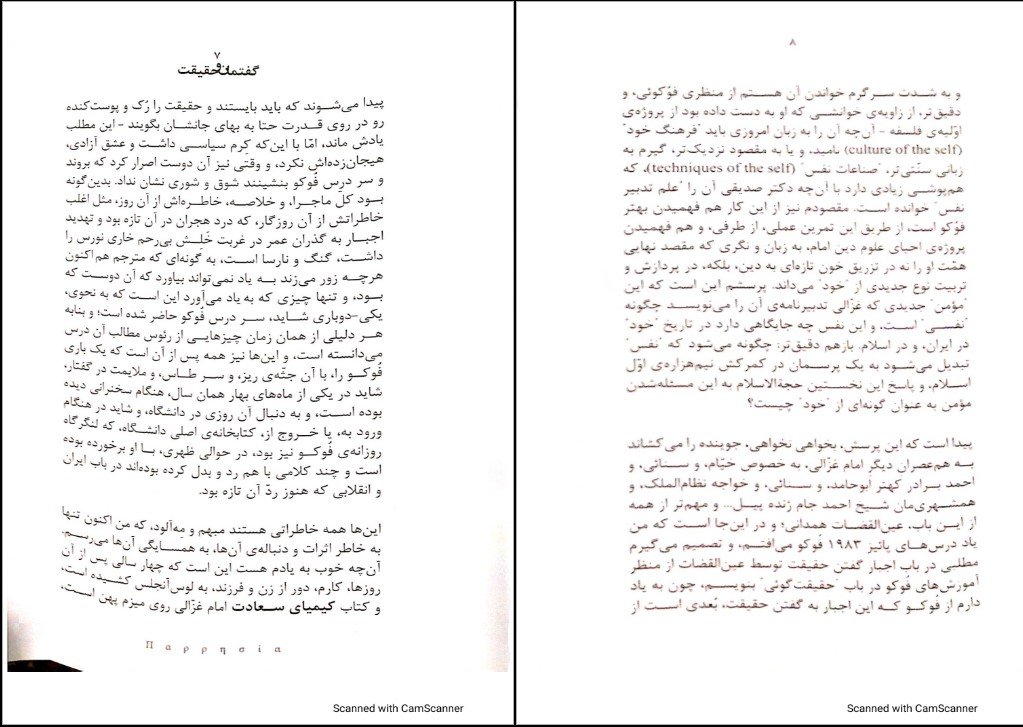 ۷
گفتمان و حقیقت
پیدا می‌شوند که باید بایستند و حقیقت را رُک و پوست‌کنده
رو در روی قدرت حتا به بهای جانشان بگویند - این مطلب
یادش ماند، اما با این‌که کِرم سیاسی داشت و عشق آزادی،
هیجان‌زده‌اش نکرد، و وقتی نیز آن دوست اصرار کرد که بروند
و سر درس فُوکو بنشینند شوق و شوری نشان نداد. بدین‌گونه
بود کل ماجرا، و خلاصه، خاطره‌اش از آن روز، مثل اغلب
خاطراتش از آن روزگار، که درد هجران در آن تازه بود و تهدید
اجبار به گذران عمر در غربت خَلِش بی‌رحم خاری نورس را
داشت، گنگ و نارسا است، به گونه‌ای که مترجم هم‌اکنون
هرچه زور می‌زند به یاد نمی‌تواند بیاورد که آن دوست که
بود، و تنها چیزی که به یاد می‌آورد این است که به نحوی،
یکی-دوباری شاید، سر درس فُوکو حاضر شده است؛ و بنابه
هر دلیلی از همان زمان چیزهایی از رئوس مطالب آن درس
می‌دانسته است، و این‌ها نیز همه پس از آن است که یک باری
فُوکو را، با آن جثّه‌ی ریز، و سر طاس، و ملایمت در گفتار،
شاید در یکی از ماه‌های بهار همان سال، هنگام سخنرانی دیده
بوده است، و به دنبال آن روزی در دانشگاه، و شاید در هنگام
ورود به، یا خروج از، کتابخانه‌ی اصلی دانشگاه، که لنگرگاه
روزانه‌ی فُوکو نیز بود، در حوالی ظهری، با او برخورده بوده
است و چند کلامی با هم رد و بدل کرده بوده‌اند در باب ایران
و انقلابی که هنوز ردّ آن تازه بود.
این‌ها همه خاطراتی هستند مبهم و مِه‌آلود، که من اکنون تنها
به خاطر اثرات و دنباله‌ی آن‌ها، به همسایگی آن‌ها می‌رسم.
آن‌چه خوب به یادم هست این است که چهار سالی پس از آن
روزها، کارم، دور از زن و فرزند، به لوس‌آنجلس کشیده است،
و کتاب کیمیای سعادت امام غزّالی روی میزم پهن است،
Π α ρ ρ η σ ί α
Scanned with CamScanner
۸
و به شدت سرگرم خواندن آن هستم از منظری فوُکوئی، و
دقیق‌تر، از زاویه‌ی خوانشی که او به دست داده بود از پروژه‌ی
اوّلیه‌ی فلسفه - آن‌چه آن را به زبان امروزی باید "فرهنگ خود"
(culture of the self) نامید، و یا به مقصود نزدیک‌تر، گیرم به
زبانی سنّتی‌تر، "صناعات نفس" (techniques of the self)، که
هم‌پوشی زیادی دارد با آن‌چه دکتر صدیقی آن را "علم تدبیر
نفس" خوانده است. مقصودم نیز از این کار هم فهمیدن بهتر
فوُکو است، از طریق این تمرین عملی، از طرفی، و هم فهمیدن
پروژه‌ی احیای علوم دین امام، به زبان و نگری که مقصد نهایی
همّت او را نه در تزریق خون تازه‌ای به دین، بلکه، در پردازش و
تربیت نوع جدیدی از "خود" می‌داند. پرسشم این است که این
"مؤمن" جدیدی که غزّالی تدبیرنامه‌ی آن را می‌نویسد چگونه
"نفسی" است، و این نفس چه جایگاهی دارد در تاریخ "خود"
در ایران، و در اسلام. بازهم دقیق‌تر: چگونه می‌شود که "نفس"
تبدیل می‌شود به یک پرسمان در کمرکش نیم‌هزاره‌ی اوّل
اسلام، و پاسخ این نخستین حجةالاسلام به این مسئله‌شدن
مؤمن به عنوان گونه‌ای از "خود" چیست؟
پیدا است که این پرسش، بخواهی نخواهی، جوینده را می‌کشاند
به هم‌عصران دیگر امام غزّالی، به خصوص خیّام، و سنائی، و
احمد برادر کهتر ابوحامد، و سنائی، و خواجه نظام‌الملک، و
همشهری‌مان شیخ احمد جام ژنده پیل... و مهم‌تر از همه
از این باب، عین‌القضات همدانی؛ و در این‌جا است که من
یاد درس‌های پائیز ۱۹۸۳ فُوکو می‌افتم، و تصمیم می‌گیرم
مطلبی در باب اجبار گفتن حقیقت توسط عین‌القضات از منظر
آموزش‌های فُوکو در باب "حقیقت‌گوئی" بنویسم، چون به یاد
دارم از فُوکو که این اجبار به گفتن حقیقت، بُعدی است از
Scanned with CamScanner